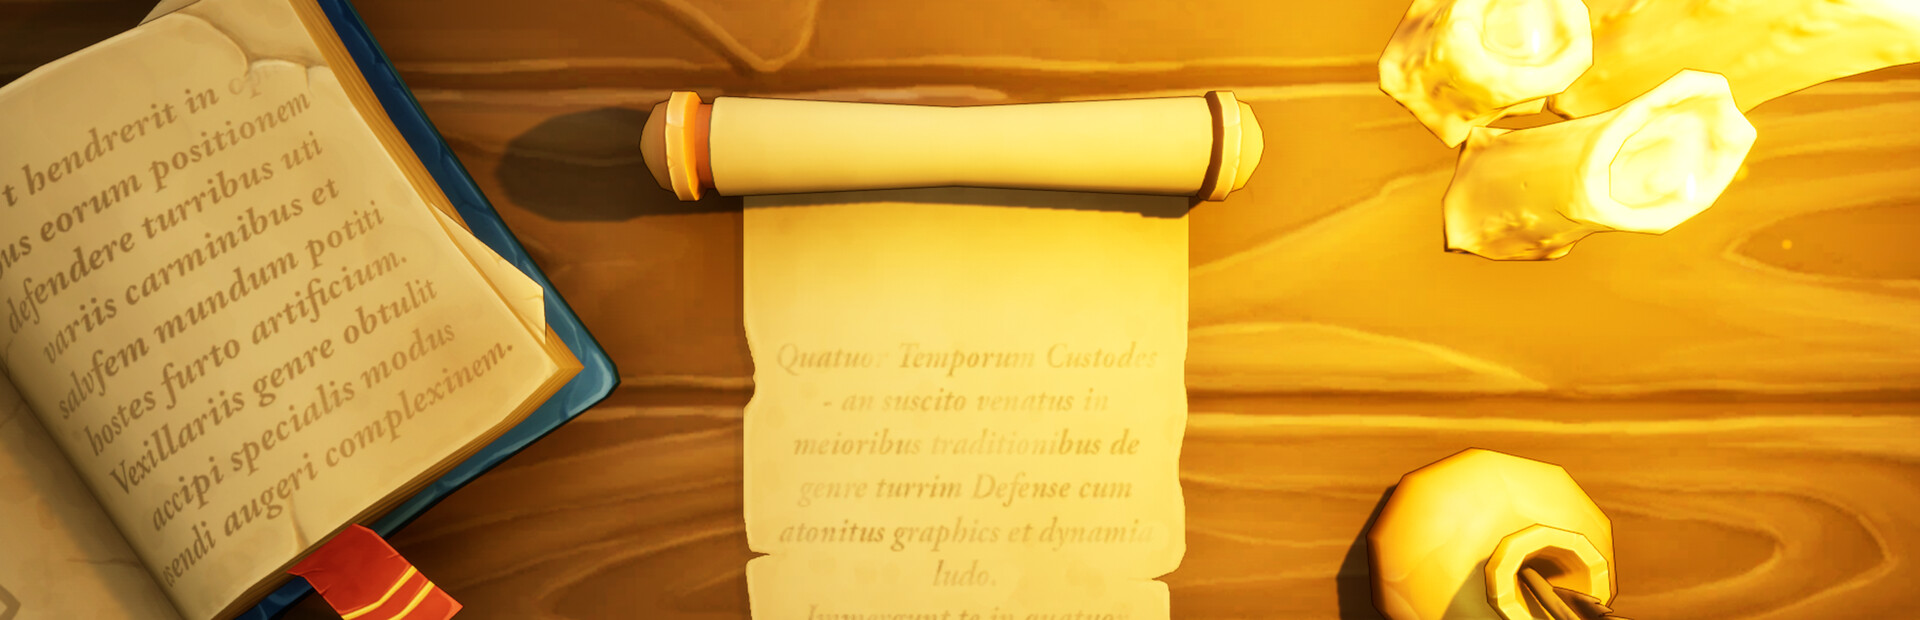 t hendrerit in op
us eorum positionem
defendere turribus uti
variis carminibus et
salvfem mundum potiti
hostes furto artificium.
Vexillariis genre obtulit
accipi specialis modus
sendi augeri complexinem.
Quatuor Temporum Custodes
- an suscito venatus in
meioribus traditionibus de
genre turrim Defense cum
atonitus graphics et dynamia
ludo.
Immergunt te in quatuor